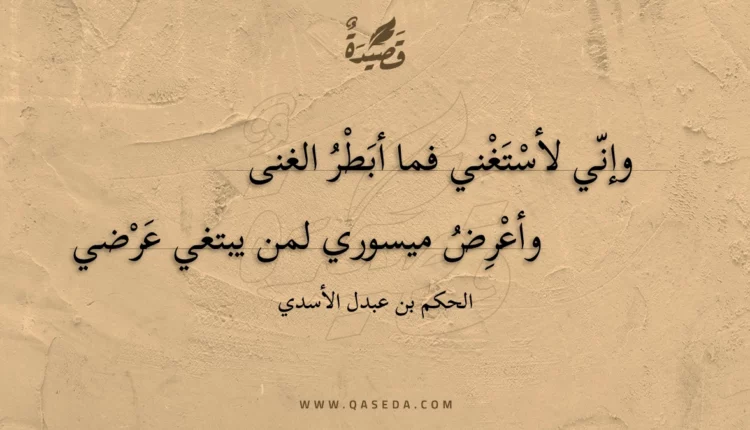 قَصِيدَةٌ
وإنّي لأسْتَغْني فما أبَطْرُ الغنى
وأعْرِضُ ميسوري لمن يبتغي عَرْضي
الحكم بن عبدل الأسدي
WWW.QASEDA.COM